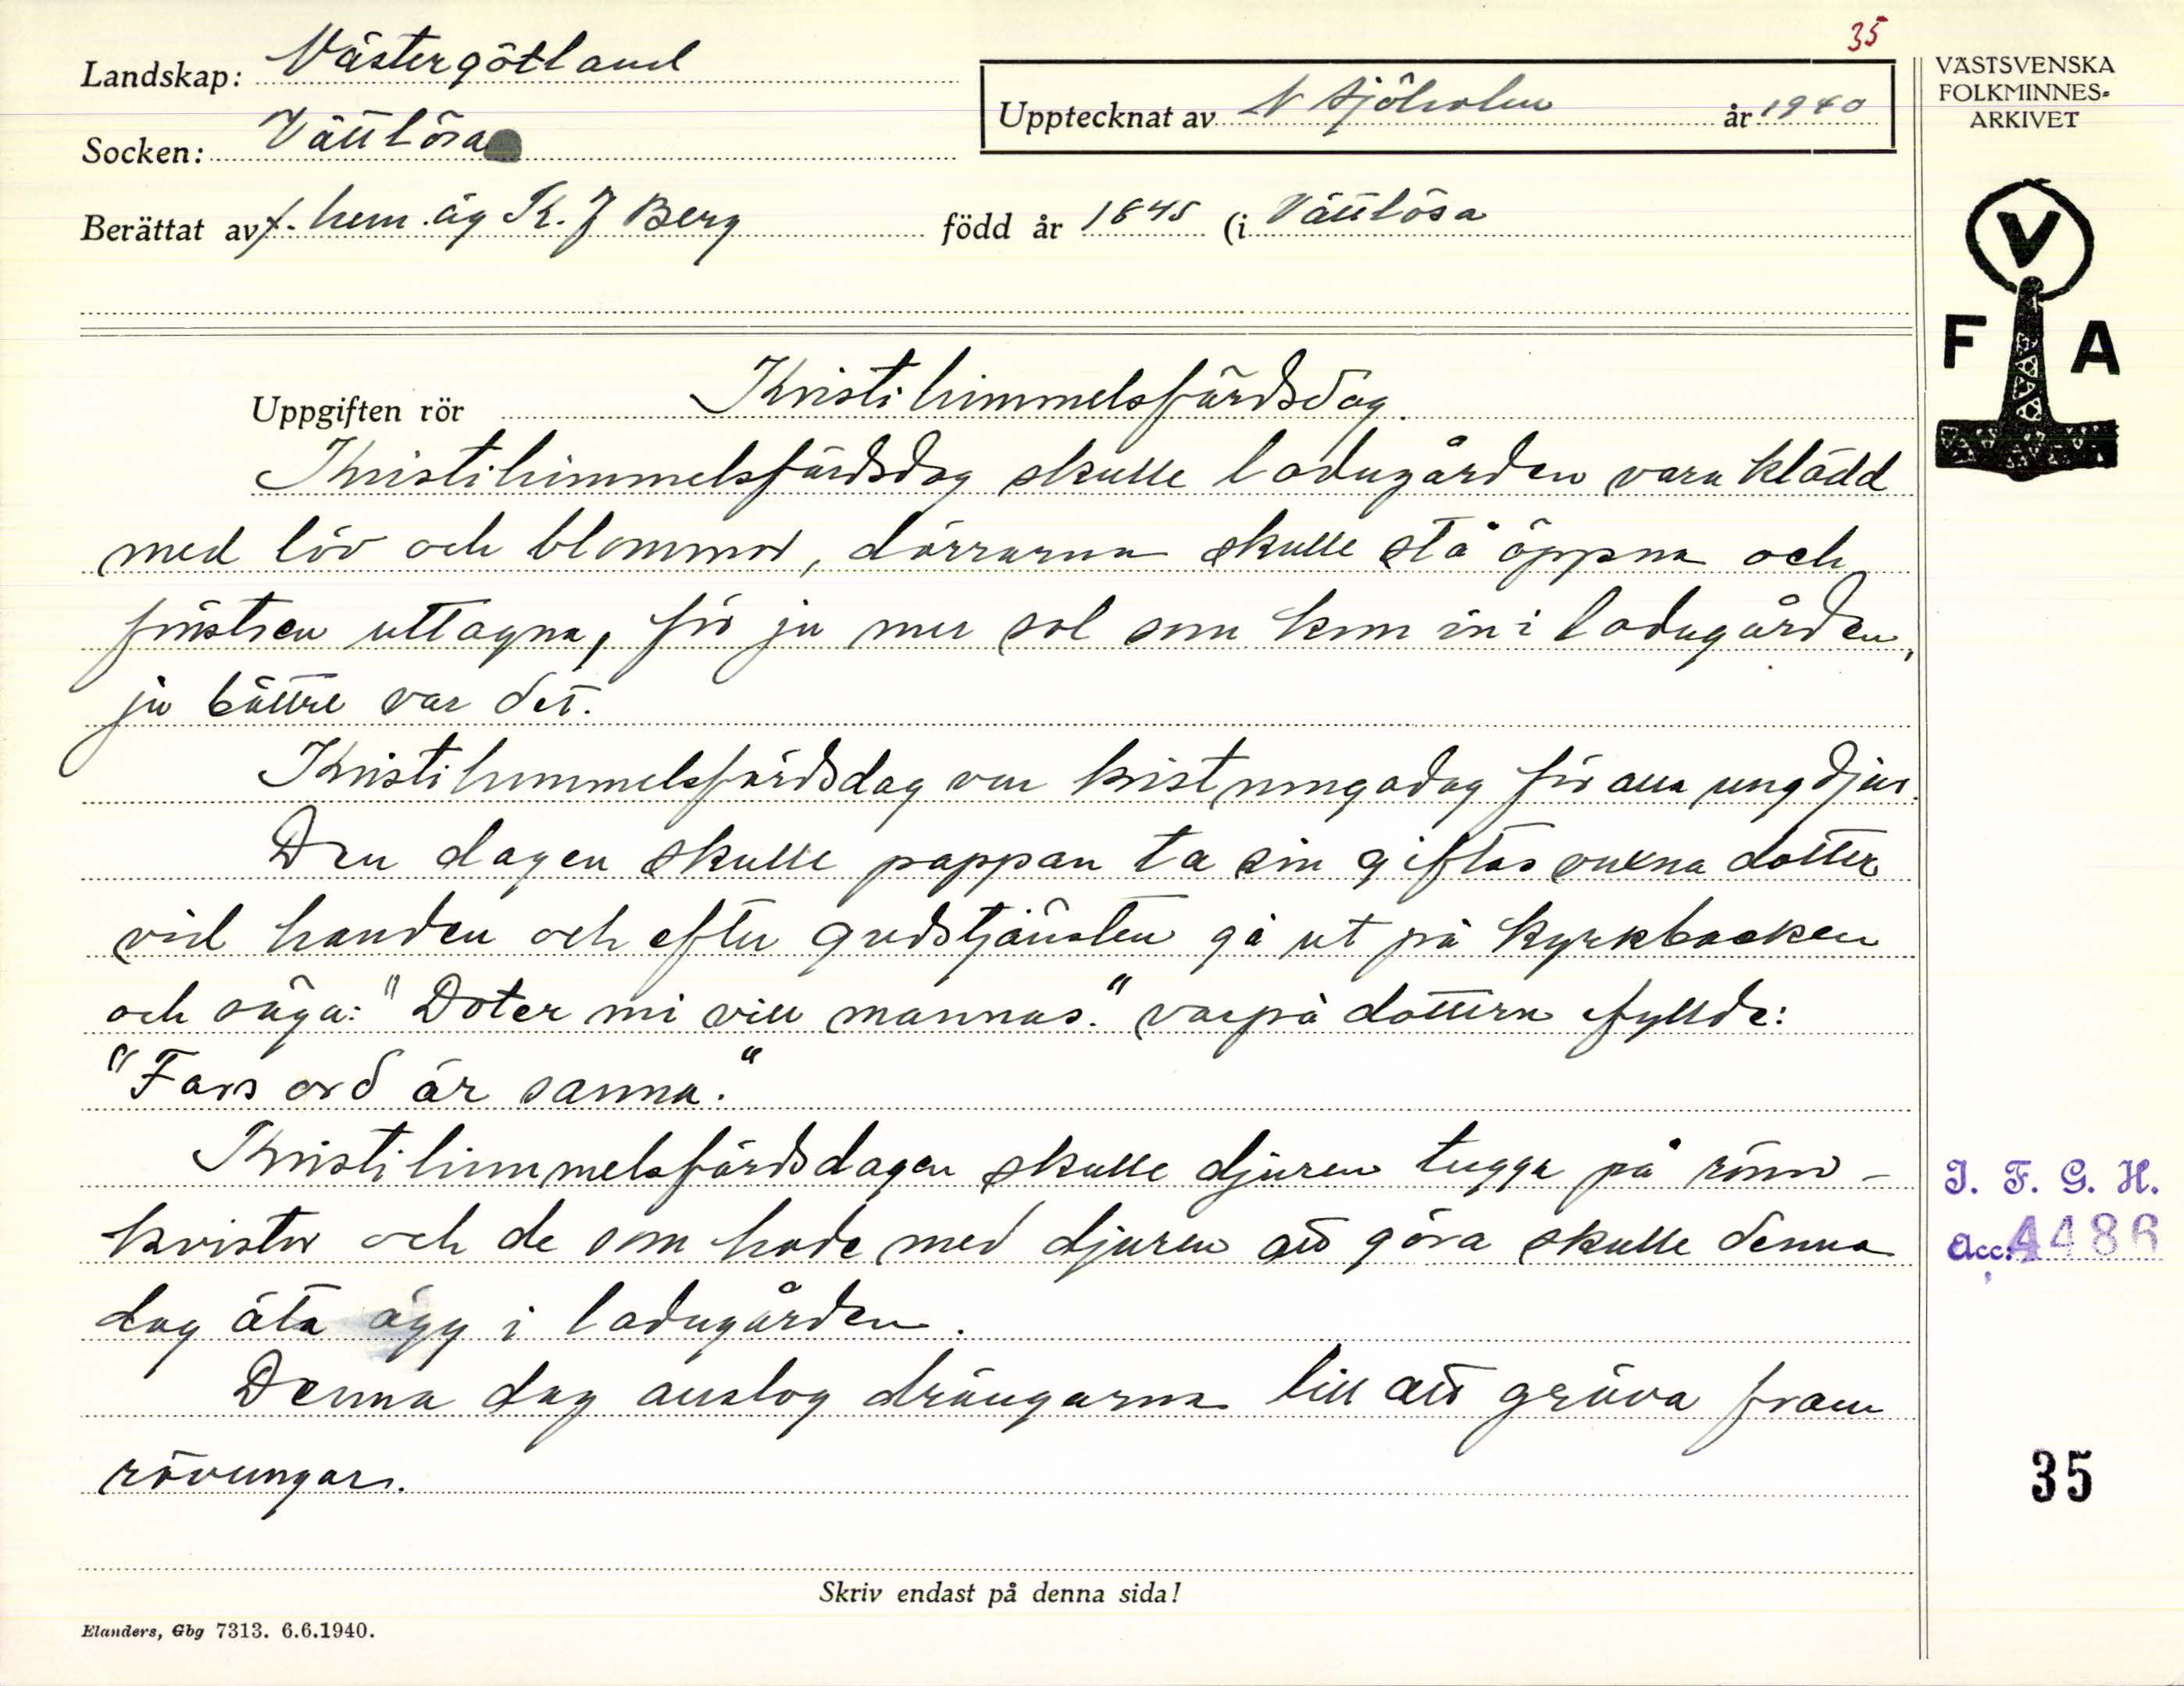 35
Landskap: Västergötland
Socken: Vättlösa
Upptecknat av N Sjöholm år 1940
Berättat av f. hem.äg K. J Berg född år 1845 (i Vättlösa
VÄSTSVENSKA
FOLKMINNES-
ARKIVET
V
F A
Uppgiften rör Kristihimmelsfärdsdag.
Kristihimmelsfärdsdag skulle ladugården vara klädd
med löv och blommor, dörrarna skulle stå öppna och
fönstren uttagna, för ju mer sol som kom in i ladugården,
ju bättre var det.
Kristihimmelsfärdsdag var kristningadag för alla ungdjur.
Den dagen skulle pappan ta sin giftasvuxna dotter
vid handen och efter gudstjänsten gå ut på kyrkbacken
och säga: "Doter mi vill mannas." varpå dottern fyllde:
"Fars ord är sanna."
Kristihimmelsfärdsdagen skulle djuren tugga på rönn-
kvistar och de som hade med djuren att göra skulle denna
dag äta ägg i ladugården.
Denna dag anslog drängarna till att gräva fram
rävungar.
I. F. G. H.
Acc. 4486
35
Skriv endast på denna sida!
Elanders, Gbg 7313. 6.6.1940.